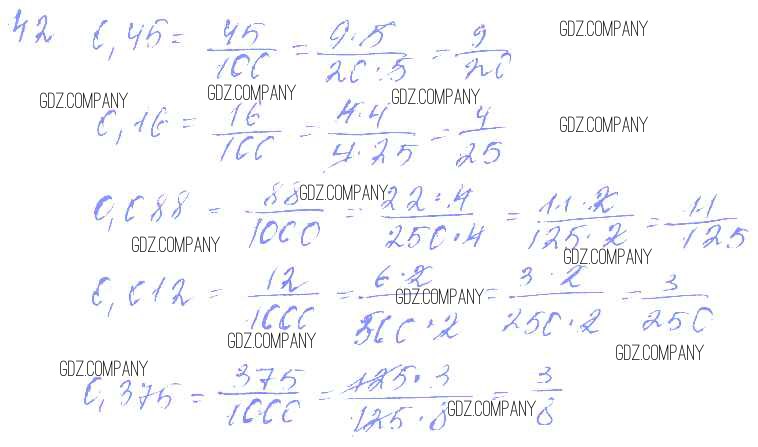 42 0,45 = 45/100 = 9·5/20·5 = 9/20 GDZ.COMPANY
GDZ.COMPANY GDZ.COMPANY GDZ.COMPANY
0,16 = 16/100 = 4·4/4·25 = 4/25 GDZ.COMPANY
0,088 = 88/1000 = 22·4/250·4 = 11·2/125·2 = 11/125
GDZ.COMPANY
GDZ.COMPANY GDZ.COMPANY
0,012 = 12/1000 = 6·2/500·2 = 3·2/250·2 = 3/250
GDZ.COMPANY
GDZ.COMPANY GDZ.COMPANY
GDZ.COMPANY
0,375 = 375/1000 = 125·3/125·8 = 3/8
GDZ.COMPANY